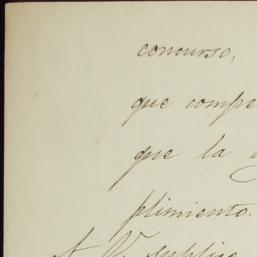 concurso,
que compe
que la
plimiento.
A V. suplico